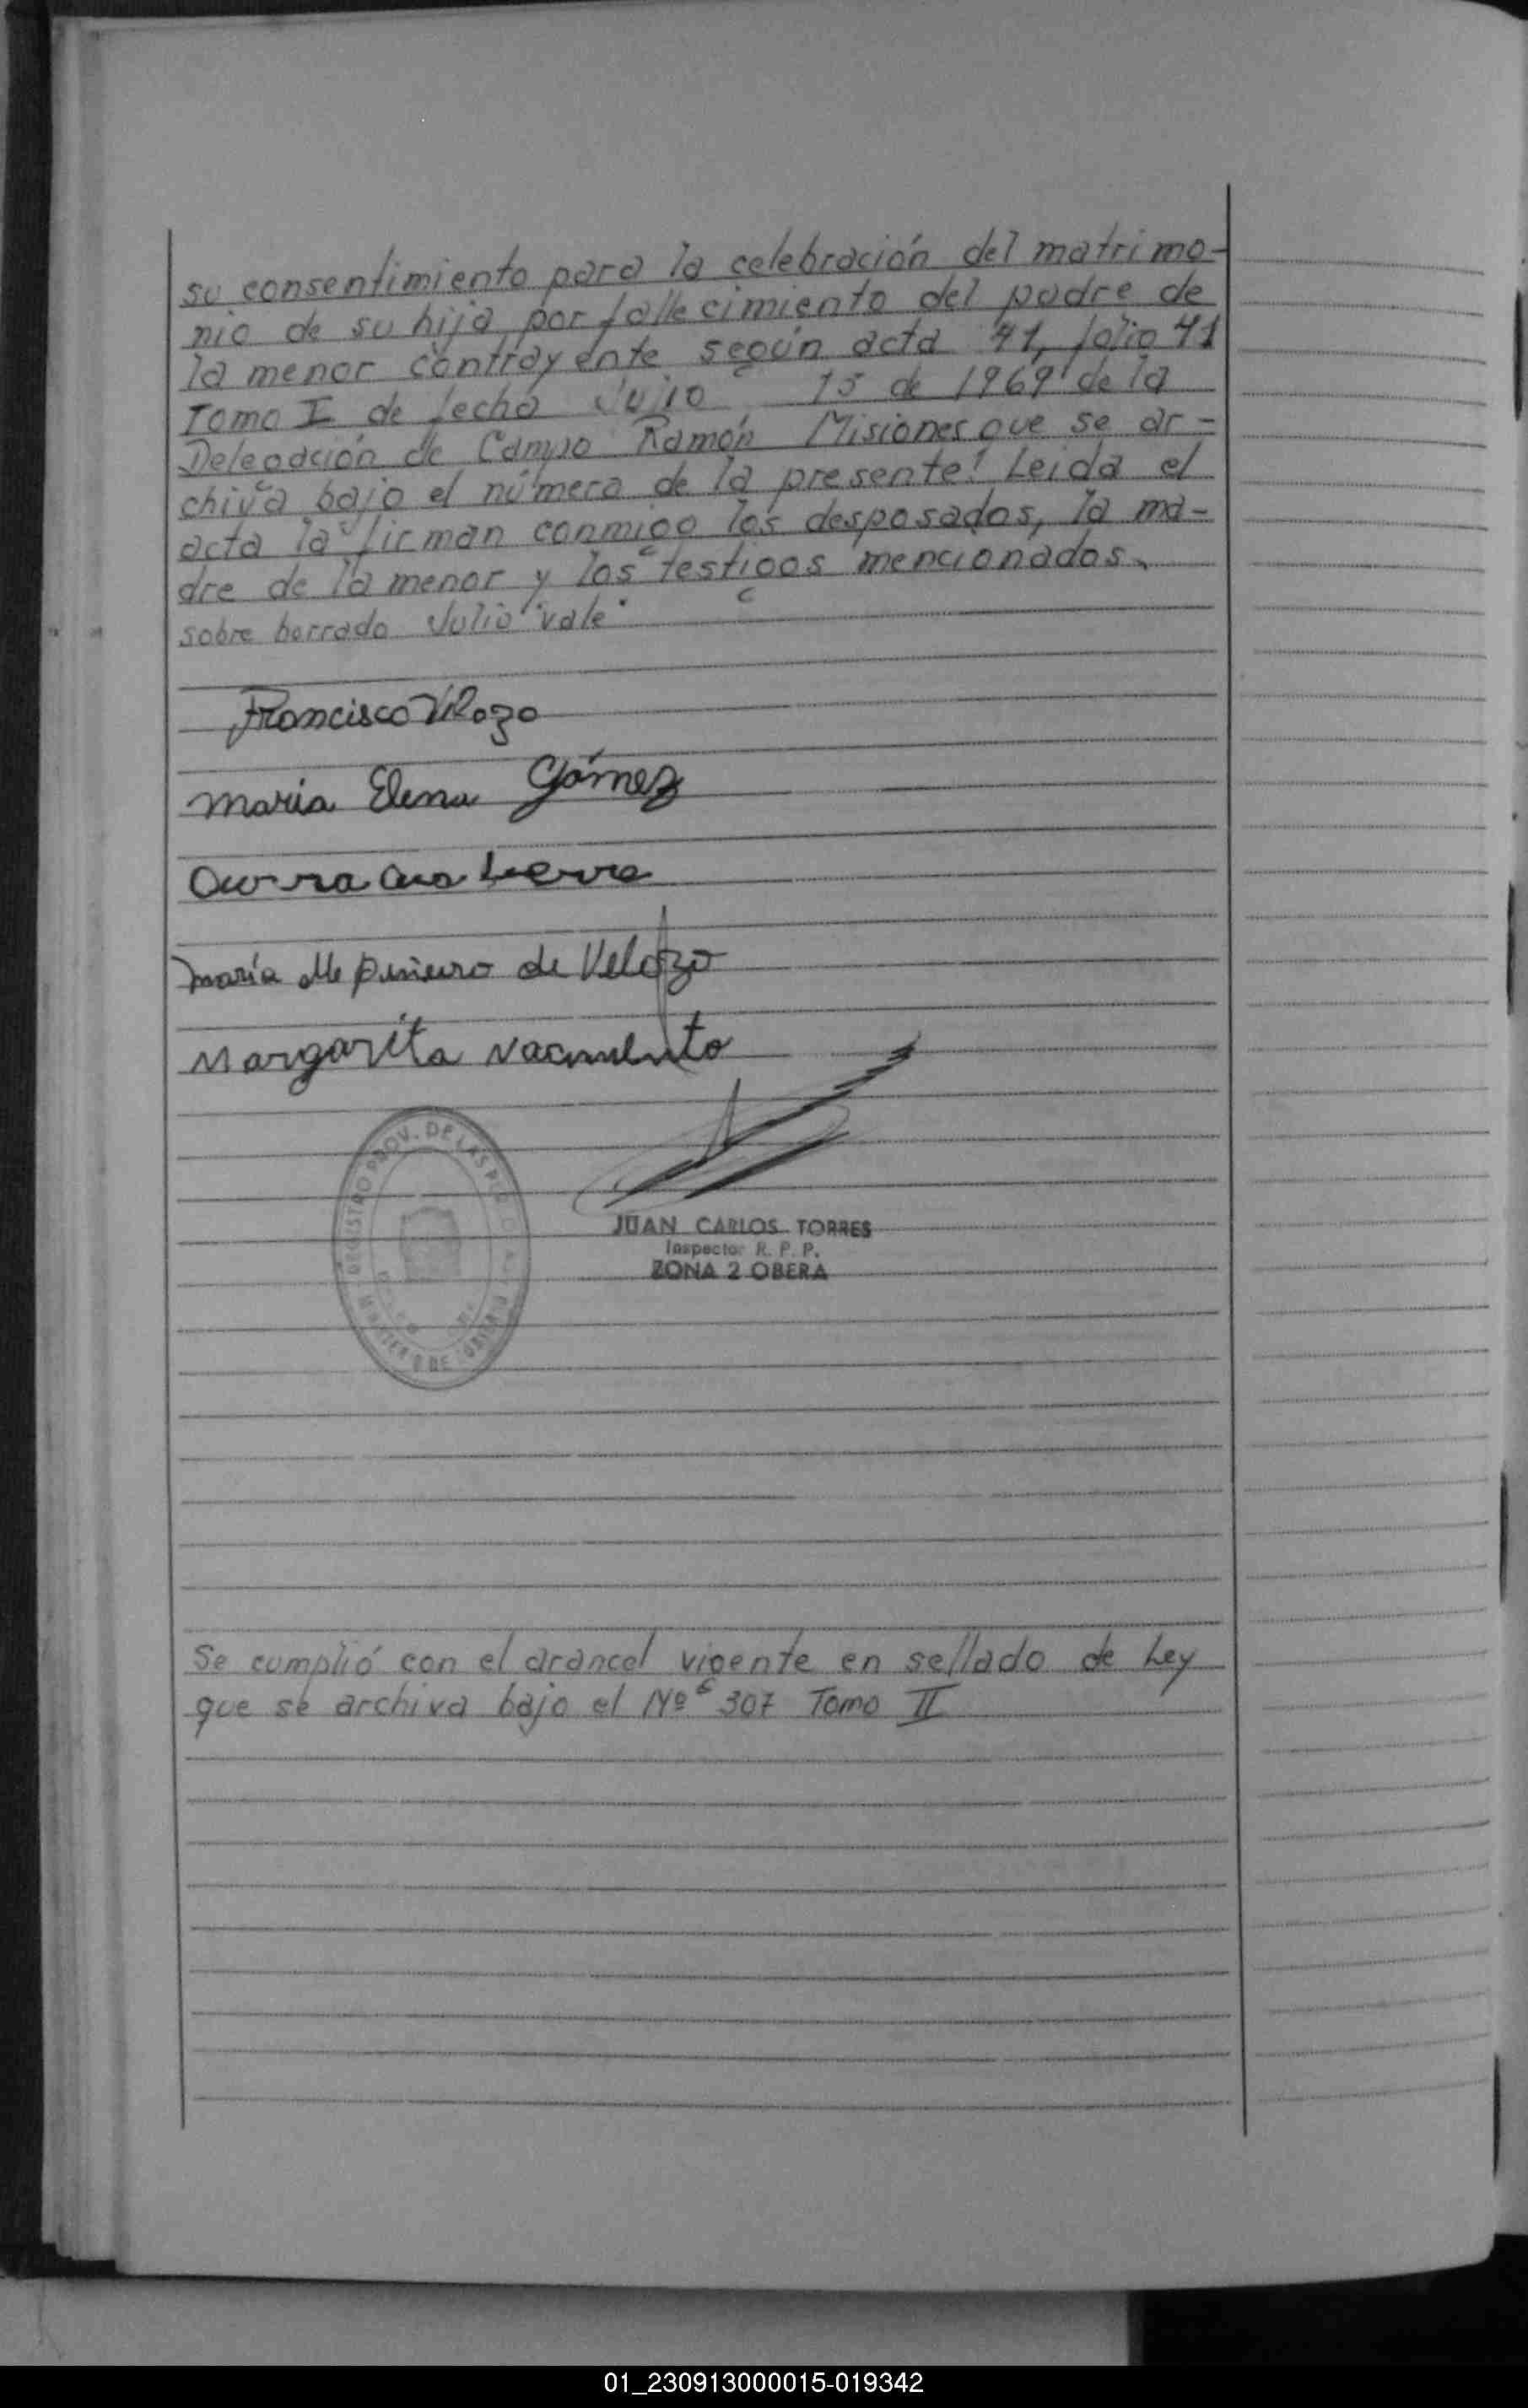 su consentimiento para la celebración del matrimo-
nio de su hija por fallecimiento del padre de
la menor contrayente según acta 41, folio 41
Tomo I de fecha Julio 15 de 1969 de la
Delegación de Campo Ramón Misiones que se ar-
chiva bajo el número de la presente. Leida el
acta la firman conmigo los desposados, la ma-
dre de la menor y los testigos mencionados.
sobre borrado Julio "vale"
Francisco Velozo
maria Elena Gómez
maría de Velozo
Margarita Nacimento
REGISTRO PROV. DE LAS
MINISTERIO DE
JUAN CARLOS TORRES
Inspector R. P. P.
ZONA 2 OBERA
Se cumplió con el arancel vigente en sellado de Ley
que se archiva bajo el Nº 307 Tomo II
01_230913000015-019342